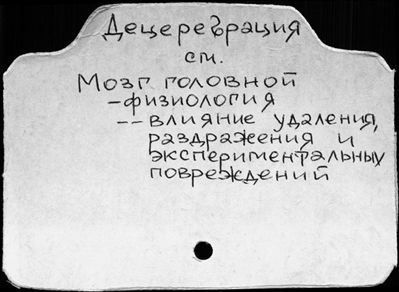 Децеребрация
см.
Мозг головной
-физиология
-- влияние удаления,
раздражения и
экспериментальных
повреждений